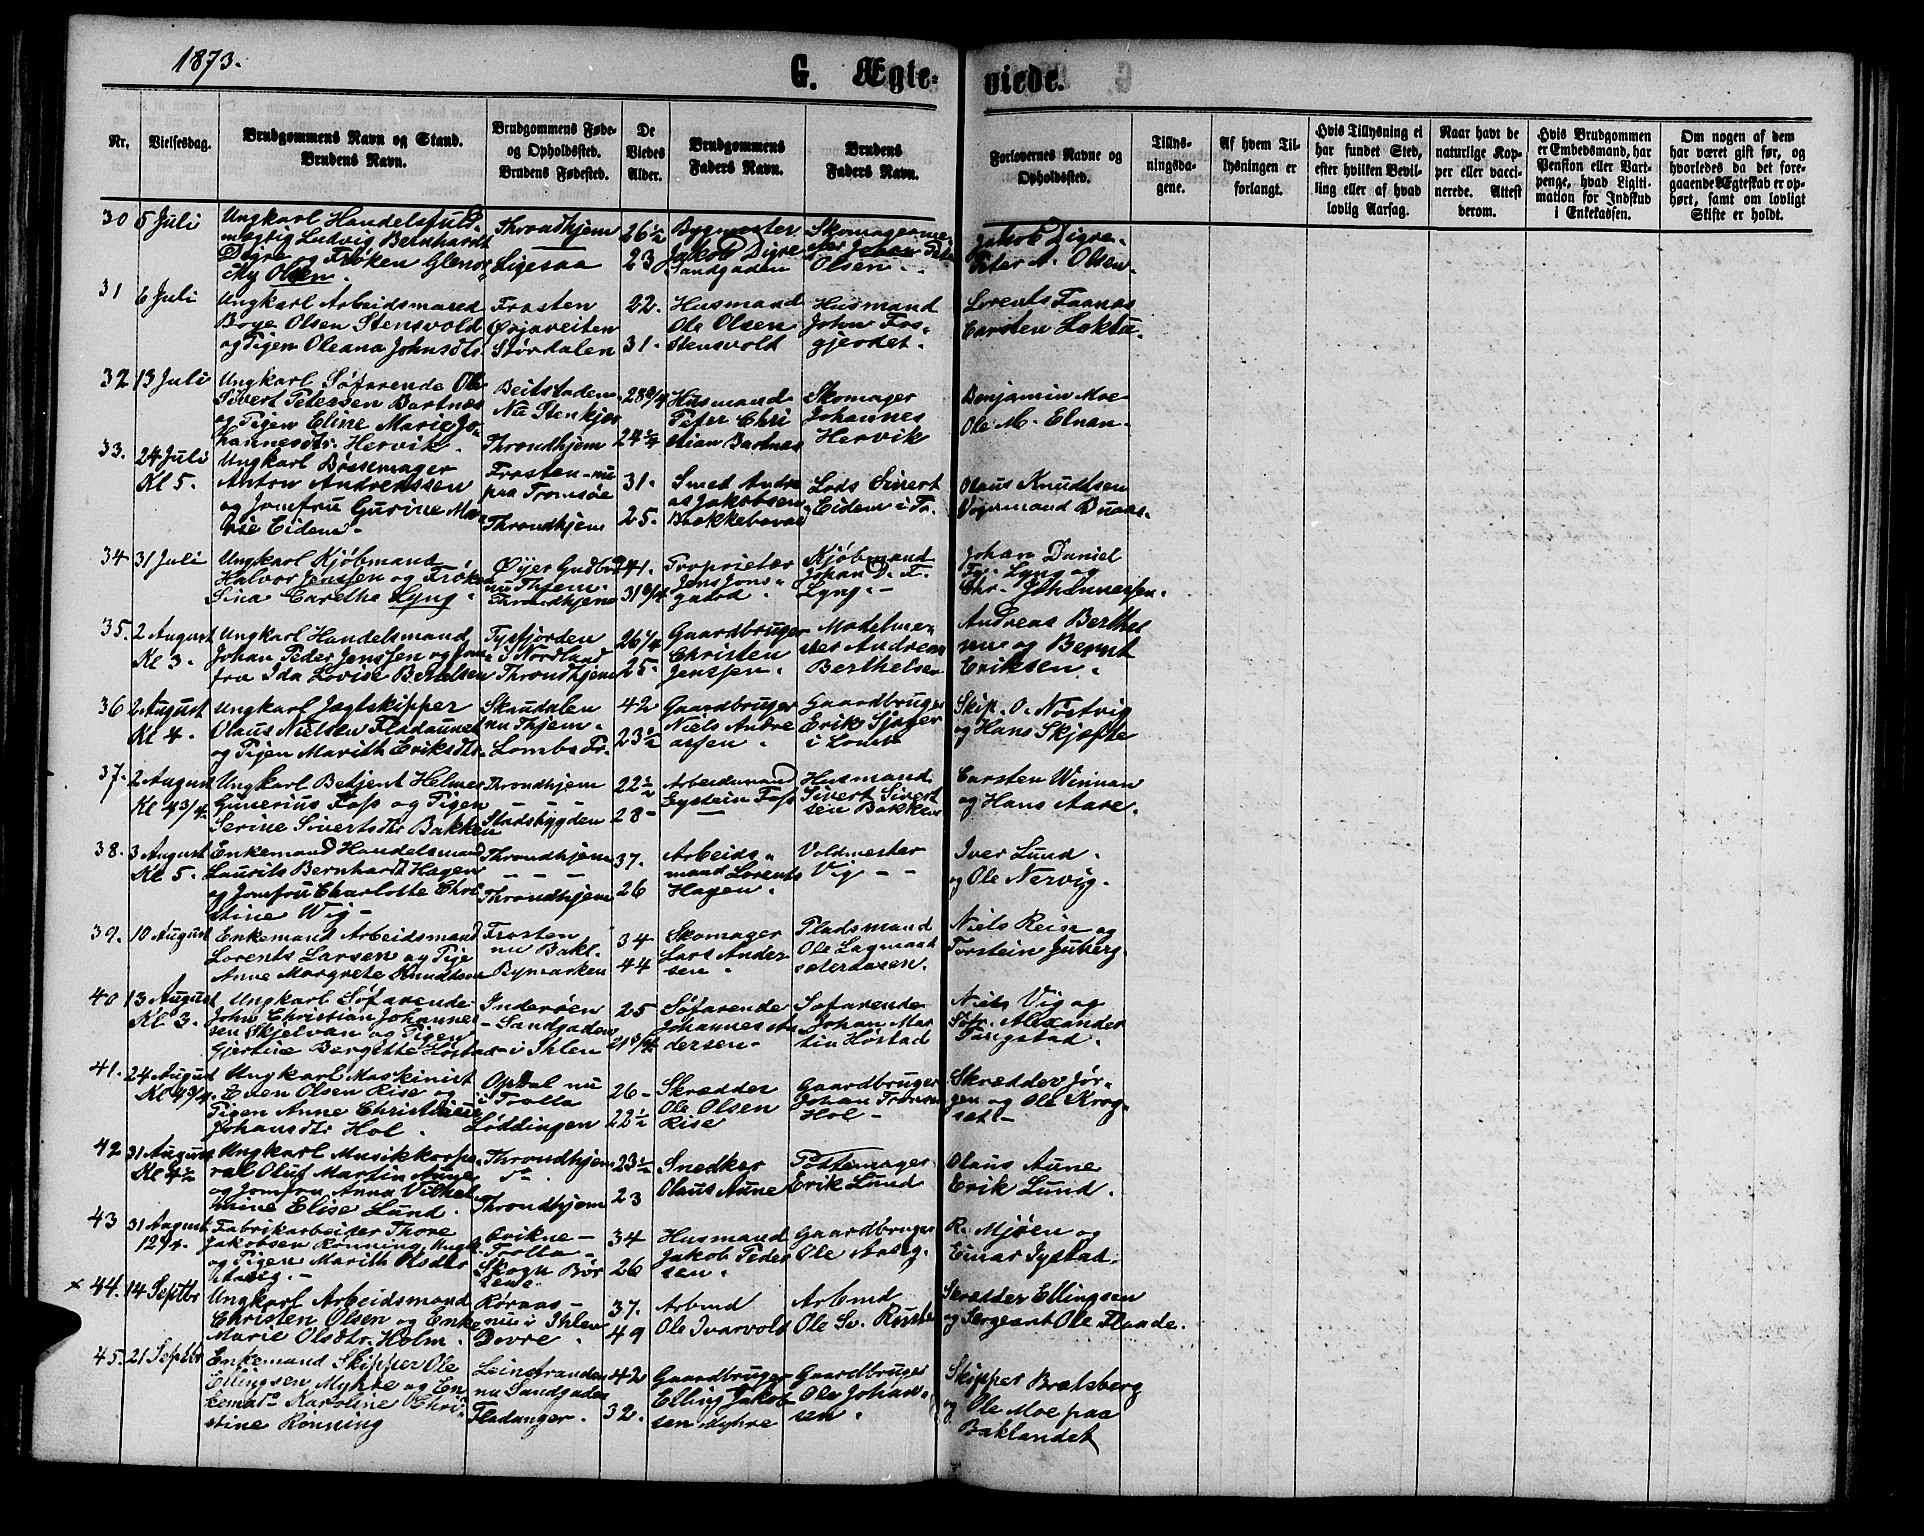 1873.
G. Ægte-
viede.
Nr.
Vielsesdag.
Brudgommens Navn og Stand.
Brudens Navn.
Brudgommens Føde-
og Opholdssted.
Brudens Fødested.
De
Viedes
Alder.
Brudgommens
Faders Navn.
Brudens
Faders Navn.
Forlovernes Navne og
Opholdssted.
Tillys-
ningsda-
gene.
Af hvem Til-
lysningen er
forlangt.
Hvis Tillysning ei
har fundet Sted,
efter hvilken Bevil-
ling eller af hvad
lovlig Aarsag.
Naar havt de
naturlige Kop-
per eller vacci-
nerede. Attest
derom.
Hvis Brudgommen
er Embedsmand, har
Pension eller Vart-
penge, hvad Ligiti-
mation for Indskud
i Enkekassen.
Om nogen af dem
har været gift før, og
hvorledes da det fore-
gaaende Ægteskab er op-
hørt, samt om lovligt
Skifte er holdt.
30 5 Juli
Ungkarl Handelsfuld-
mægtig Ludvig Bernhardt
Digre og Frøken
My Olsen
Throndhjem
Ligesaa
26½
23
Bygmester
Jakob Digre
Sandgaden
Skomagerme-
ster Johan
Olsen.
Jakob Digre.
Peter A. Olsen.
31 6 Juli
Ungkarl Arbeidsmand
Boye Olsen Stensvold
og Pigen Oleana Johnsdtr
Frosten
Størdalen
22.
31.
Husmand
Ole Olsen
Stensvold
Husmand
John Fos-
gjerdet.
Lorents Faanes
Carsten
32 13 Juli
Ungkarl Søfarende Ole
Sivert Petersen Bartnes
og Pigen Eline Marie Jo-
hannesdtr. Hervik.
Beitstaden
Nu Stenkjer
Throndhjem
28¾
Husmand
Peter Chri
stian Bartnes
Skomager
Johannes
Hervik
Benjamin Moe
Ole M. Elnan.
33. 24 Juli
Kl 5.
Ungkarl Bøssemager
Anton Andreassen
og Jomfru Gurine Ma-
rie Eidem.
Frosten nu
paa Tromsøe
Throndhjem
31.
25.
Smed Andre
as Jakobsen
Lods Sivert
Eidem i
Olaus Knudtsen
Vognmand
34 31 Juli
Ungkarl Kjøbmand
Halvor Jenssen og Frøken
Sina Carethe Lyng.
Øyer Gudbr
nu Thjem.
Throndhjem
41.
31¾
Proprietær
Jens Jons-
gaard.
Kjøbmand
Johan D. F.
Lyng.
Johan Daniel
Fr. Lyng og
Chr. Johannessen.
35. 2 August
Kl 3.
Ungkarl Handelsmand
Johan Peder Jenssen og Jom
fru Ida Lovise Bertelsen
Tysfjorden
i Nordland
Throndhjem
26¼
25.
Gaardbruger
Christen
Jenssen.
Madelme-
ster Andreas
Berthelsen
Andreas Berthel
sen og Bernt
Eriksen.
36 2 August
Kl 4.
Ungkarl Jægtskipper
Olaus Nielsen Fladaunet
og Pigen Marith Eriksdtr.
Skaudalen
nu Thjem.
Lombs Pr.
42
23½
Gaardbruger
Niels Andre
assen.
Gaardbruger
Erik
i Lomb
Skip. O. Nøstvig
og Hans Skjefte
37. 2 August
Kl 4 3/4.
Ungkarl Betjent Helmer
Gunerius Foss og Pigen
Serine Sivertsdtr Bakken
Throndhjem
Stadsbygden
22½
28
Arbeidsmand
Eystein Foss
Husmand
Sivert Sivert
sen Bakken
Carsten Winnan
og Hans Aare.
38. 3 August
Kl 5.
Enkemand Handelsmand
Laurits Bernhardt Hagen
og Jomfru Charlotte Chri
stine Wig
Throndhjem
Throndhjem
37.
26
Arbeids-
mand Lorents
Hagen.
Voldmester
Vig
Iver Lund.
og Ole Nervig.
39. 10 August
Enkemand Arbeidsmand
Lorents Larsen og Pige
Anne Margrete Knudtsen
Frosten
nu Bakl.
Bymarken
34
44
Skomager
Lars Ander
sen.
Pladsmand
Ole
Niels Reise og
Torstein Juberg.
40 13 August
Kl 3.
Ungkarl Søfarende
John Christian Johannes
sen Skjelvan og Pigen
Gjertine Bergitte Høstad
Inderøen
Sandgaden
i Ihlen
25
21¾
Søfarende
Johannes An
dersen
Søfarende
Johan Mar
tin Høstad
Niels Vig og
Petr. Alexander
Tangstad.
41. 24 August
Kl 4 3/4.
Ungkarl Maskinist
Even Olsen Rise og
Pigen Anne Christine
Johansdtr Hol.
Opdal nu
i Trolla
Løddingen
26
22½
Skrædder
Ole Olsen
Rise
Gaardbruger
Johan
Hol
Skrædder Jør-
gen og Ole Krog-
set
42 31 August
Kl 4½
Ungkarl Musikkorpo
ral Oluf Martin Aune
og Jomfru Anna Vilhel
mine Elise Lund.
Throndhjem
Throndhjem
23½
23
Snedker
Olaus Aune
Pottemager
Erik Lund
Olaus Aune
Erik Lund.
43 31 August
12¾.
Fabrikarbeider Thore
Jakobsen Rønning Ungk
og Pigen Marith Olsdtr
Aasig.
Qvikne
Trolla
Skogn Bør
sen
34
26
Husmand
Jakob Peder
sen.
Gaardbruger
Ole Aasig.
R. Mjøen og
Einar Tystad.
× 44. 14 Septbr
Ungkarl Arbeidsmand
Christen Olsen og Enke
Marie Olsdtr. Holm.
Røraas
nu i Ihlen
Dovre.
37.
49
Arbmd
Ole Ivarvold
Arbmd
Ole Sv. Rusten
Skrædder Ellingsen
og Sergeant Ole Flaade.
45. 21 Septbr
Enkemand Skipper Ole
Ellingsen Myhre og En
kemad. Karoline Chri
stine Rønning
Leinstranden
nu Sandgaden
Fladanger.
42
32.
Gaardbruger
Elling Jakob
sen Myhre
Gaardbruger
Ole Johan-
sen.
Skipper Bratsberg
og Ole Moe paa
Baklandet